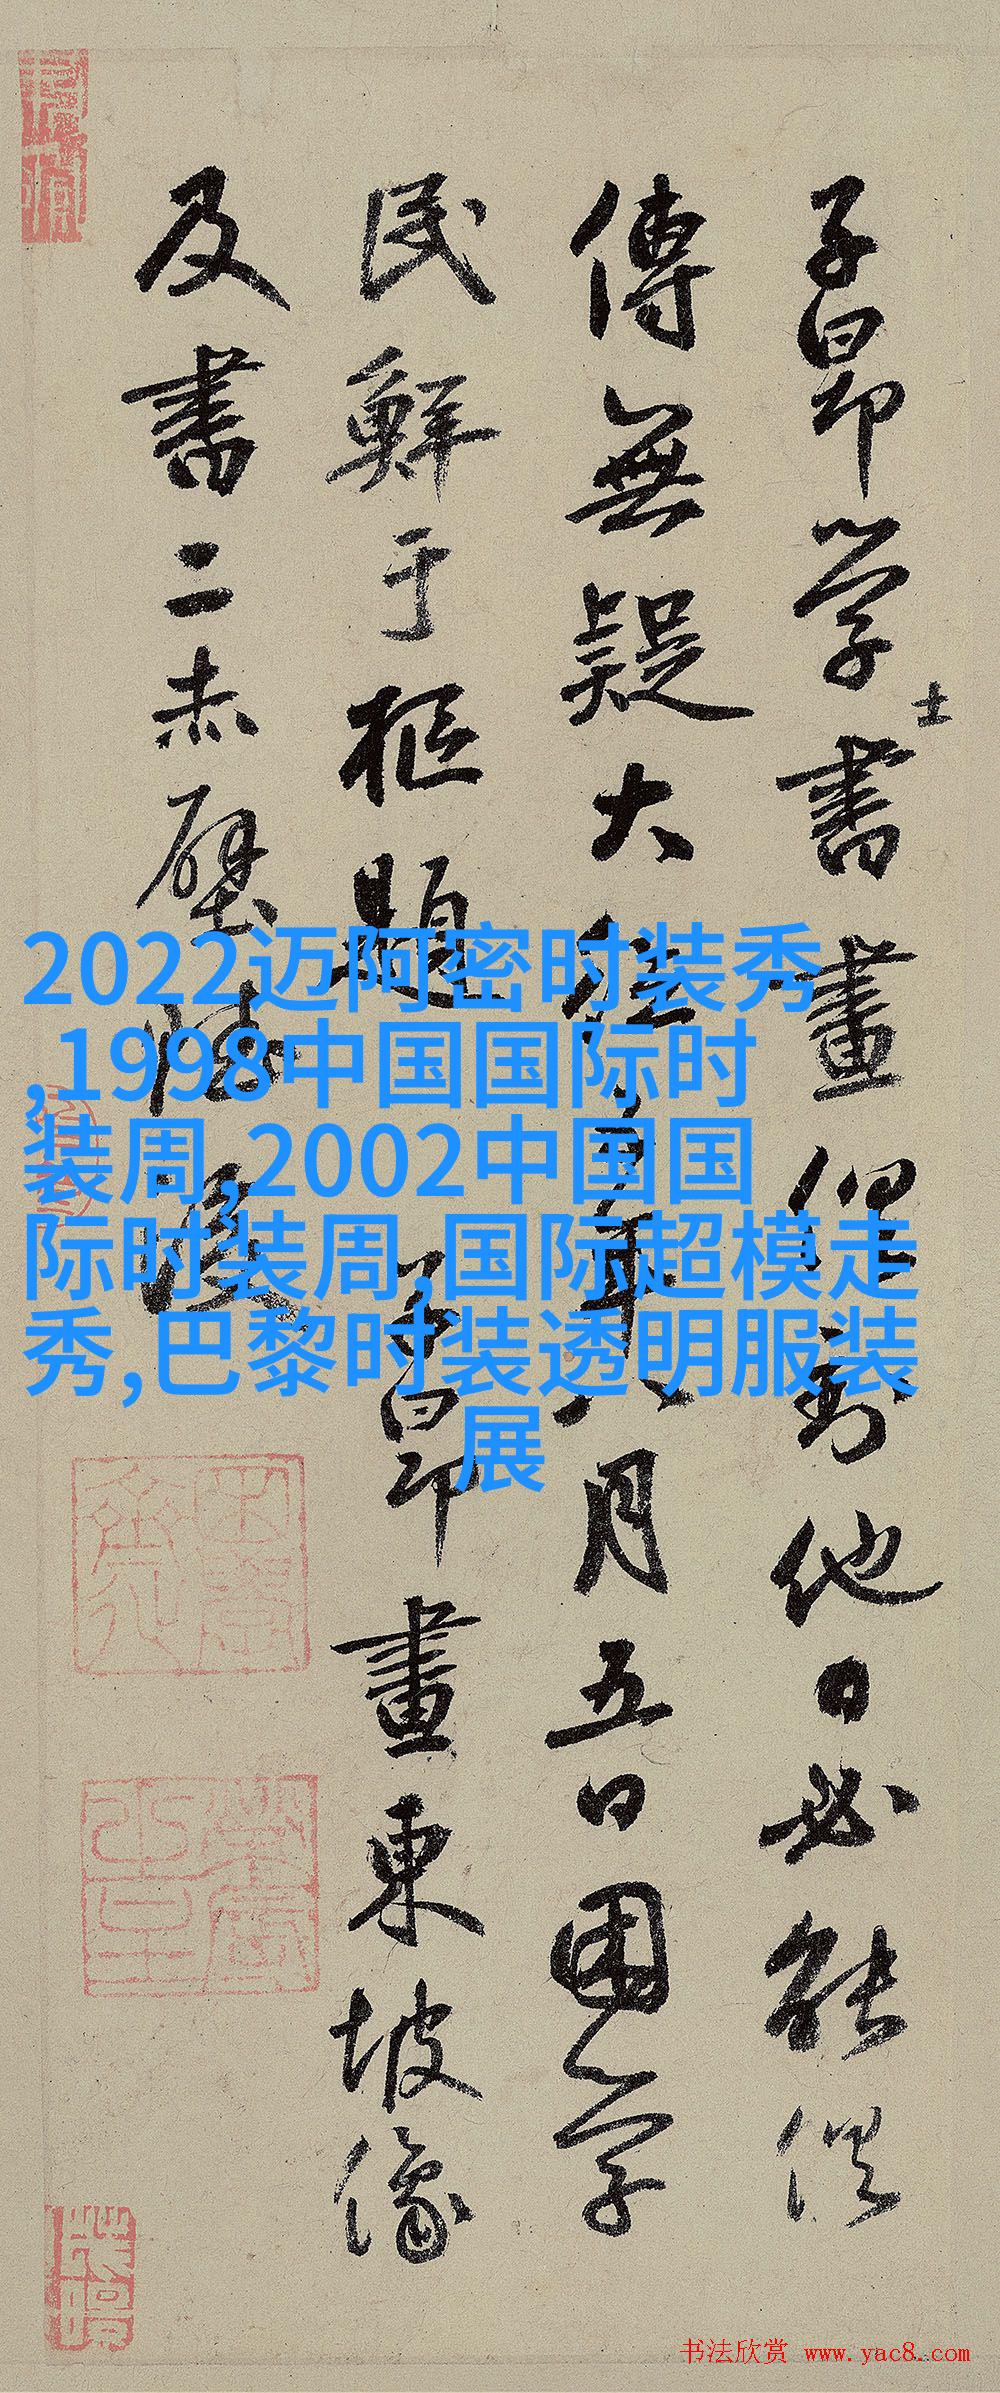 子昂学士書畫俱到他日必能俱
傳無疑大德年八月五日困學
民鮮于樞題子昂畫東坡像
及書二赤壁賦後
2022迈阿密时装秀
,1998中国国际时
装周,2002中国国
际时装周,国际超模走
秀,巴黎时装透明服装
展
书法欣赏 www.yac8.com